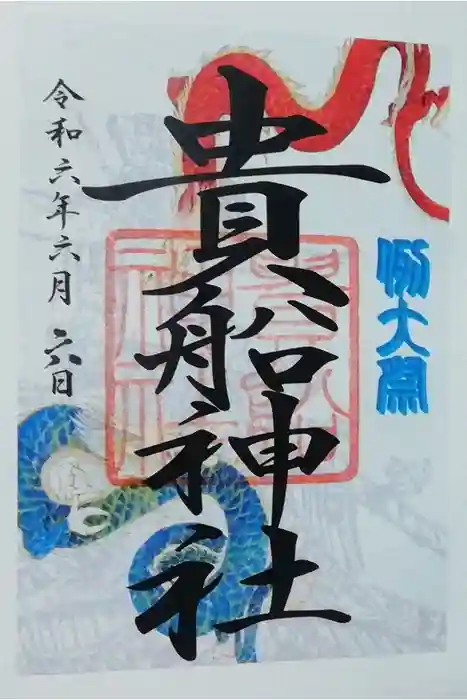 例大祭
貴船神社
令和六年六月六日